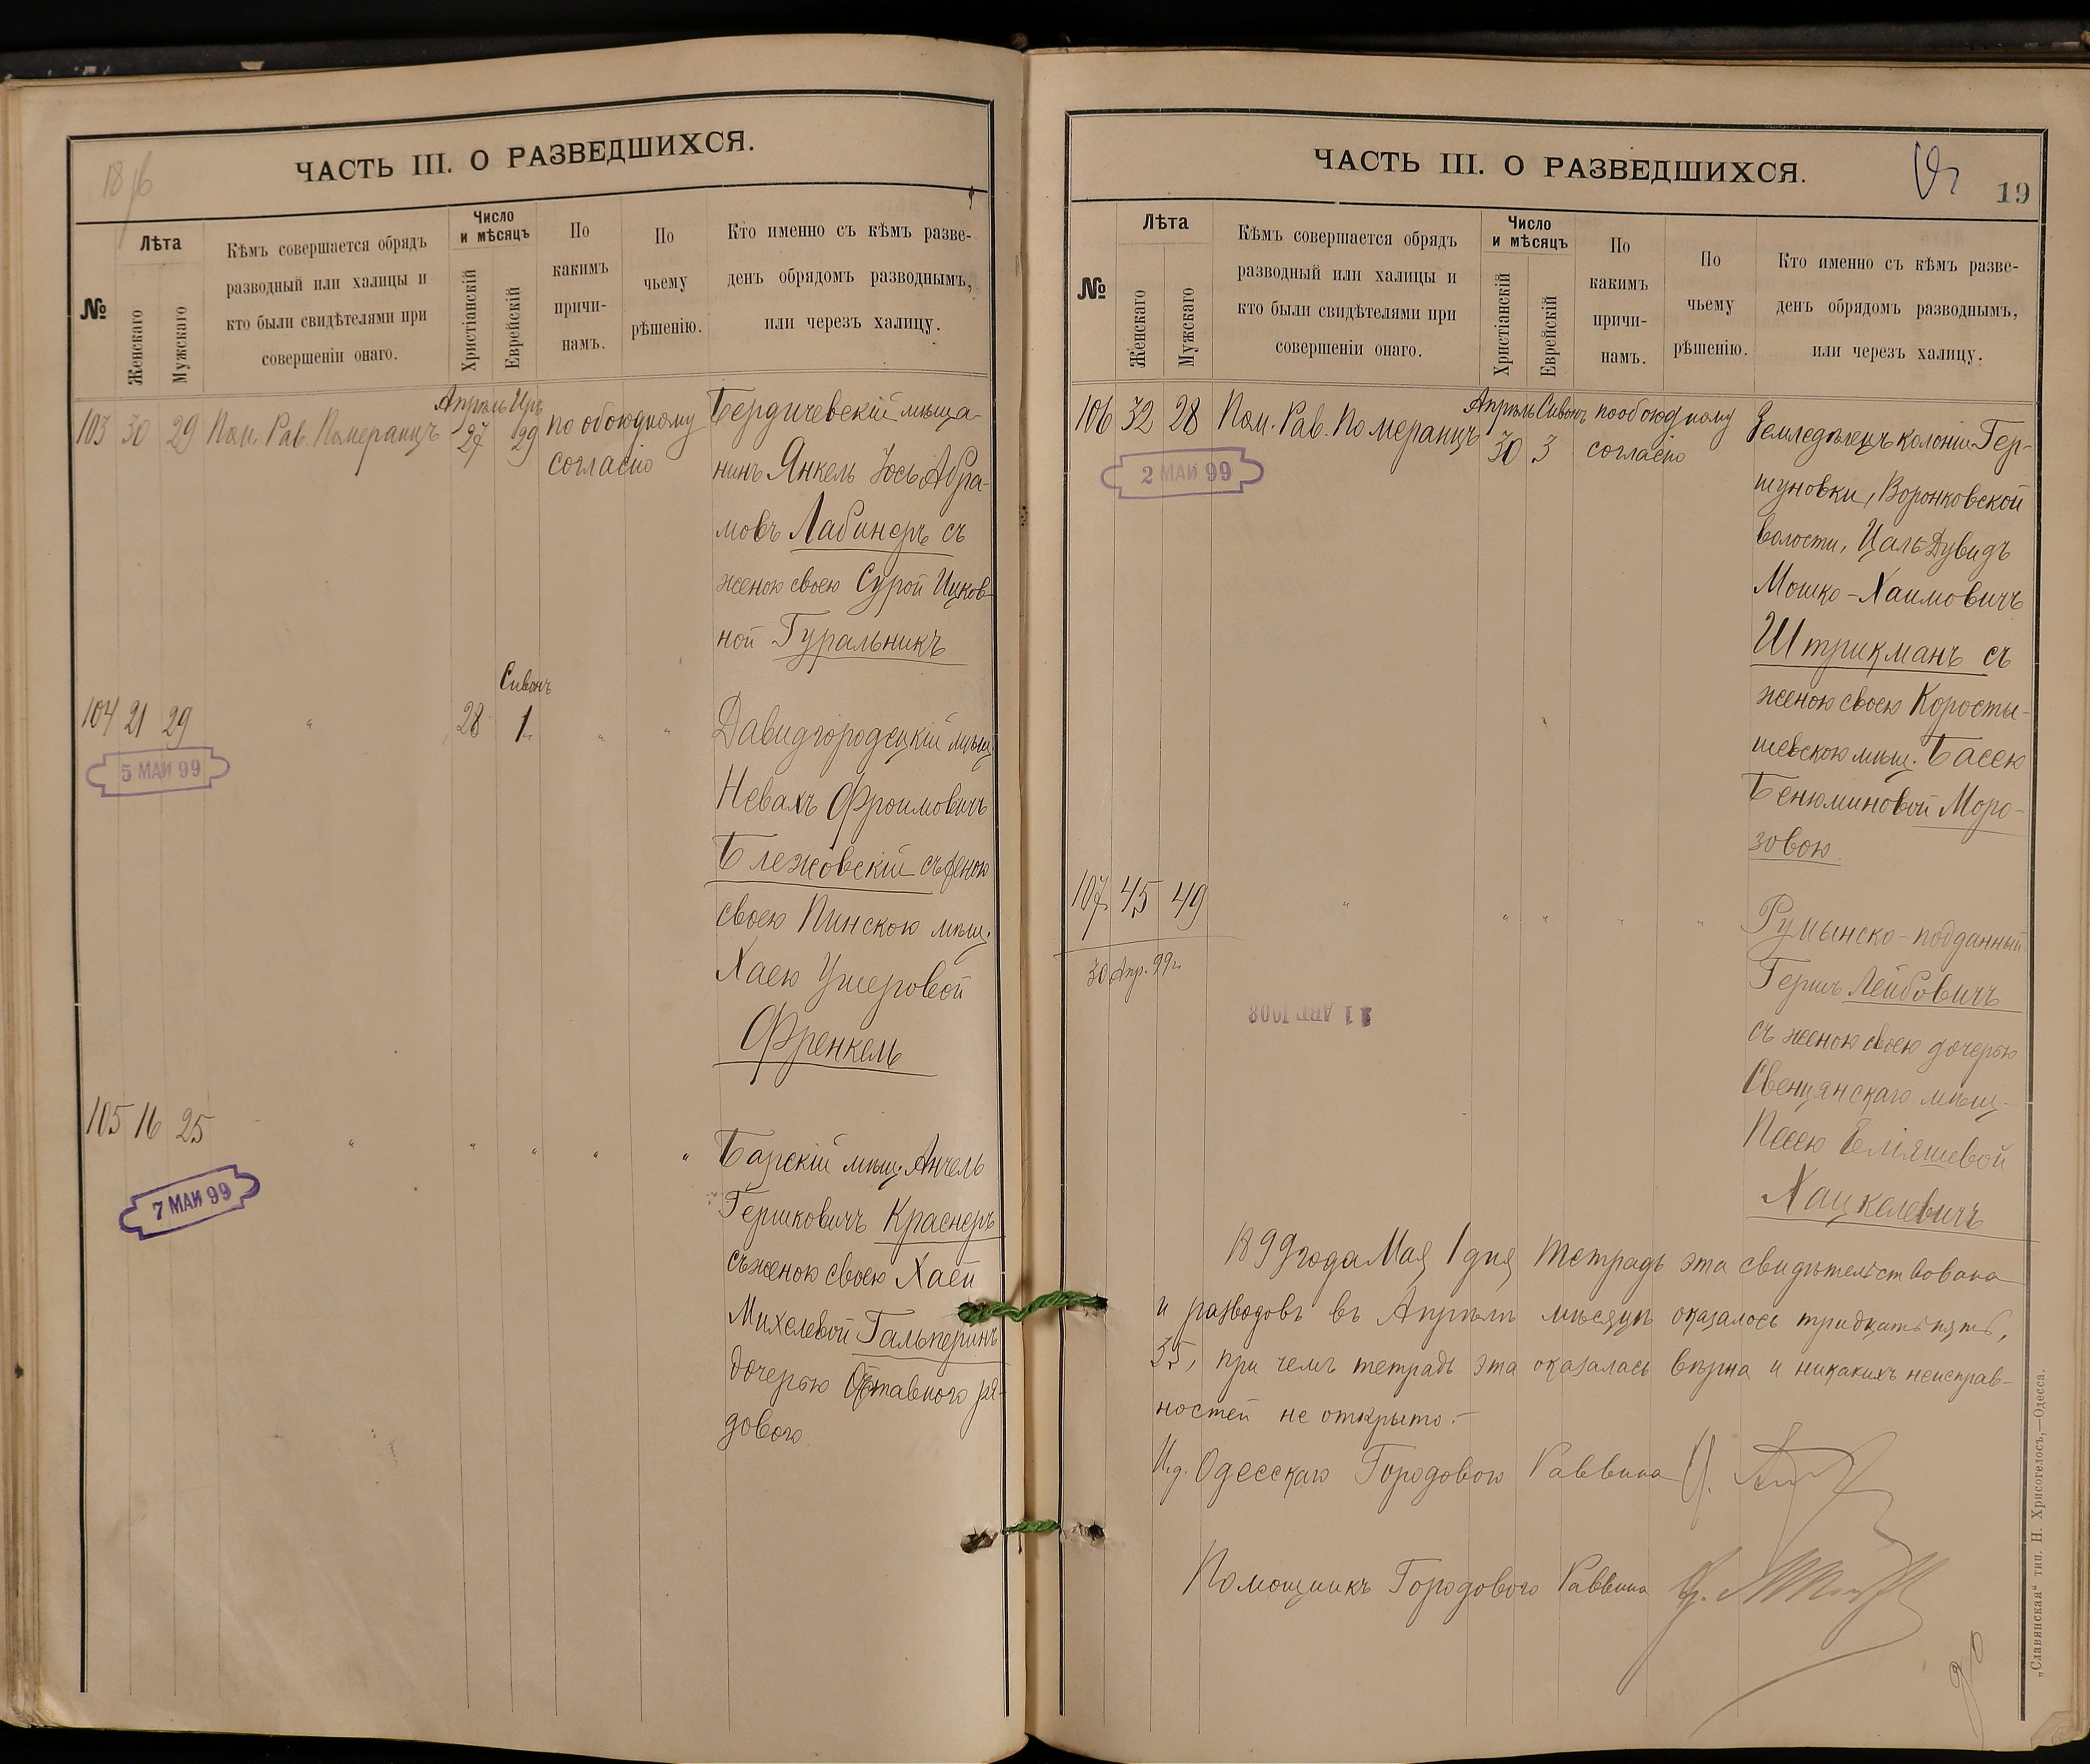 ЧАСТЬ III. О РАЗВЕДШИХСЯ.
№
Лѣта
Женскаго
Мужскаго
Кѣмъ совершается обрядъ
разводный или халицы и
кто были свидѣтелями при
совершеніи онаго.
Число
и мѣсяцъ
Христіанскій
Еврейскій
По
какимъ
причи-
намъ.
По
чьему
рѣшенію.
Кто именно съ кѣмъ разве-
денъ обрядомъ разводнымъ,
или черезъ халицу.
103 30 29 Пом. Рав. Померанцъ
Апрѣль Иръ
27 29
по обоюдному
согласію
Бердичевскій мѣща-
нинъ Янкель Іось Абра-
мовъ Лабинеръ съ
женою своею Сурой Ицков-
ной Гуральникъ
104 21 29 "
Сивонъ
28 1 " "
5 МАЙ 99
Давидгородецкій мѣщ.
Невахъ Фроимовичъ
Блежовскій съ женою
своею Пинскою мѣщ.
Хаею Ушеровой
Френкель
105 16 25 " " " " "
7 МАЙ 99
Барскій мѣщ. Анчель
Гершковичъ Краснеръ
съ женою своею Хаей
Михелевой Гальперинъ
дочерью Отставного ря-
дового
ЧАСТЬ III. О РАЗВЕДШИХСЯ.
19
№
Лѣта
Женскаго
Мужскаго
Кѣмъ совершается обрядъ
разводный или халицы и
кто были свидѣтелями при
совершеніи онаго.
Число
и мѣсяцъ
Христіанскій
Еврейскій
По
какимъ
причи-
намъ.
По
чьему
рѣшенію.
Кто именно съ кѣмъ разве-
денъ обрядомъ разводнымъ,
или черезъ халицу.
106 32 28 Пом. Рав. Померанцъ
Апрѣль Сивонъ
30 3
по обоюдному
согласію
2 МАЙ 99
Земледѣлецъ колоніи Гер-
шуновки, Воронковской
волости, Цаль Дувидъ
Мошко-Хаимовичъ
Штрикманъ съ
женою своею Коросты-
шевскою мѣщ. Басею
Бенюминовой Моро-
зовою.
107 45 49 " " " " "
30 Апр. 99 г.
Румынско-подданный
Гершъ Лейбовичъ
съ женою своею дочерью
Свенцянскаго мѣщ.
Песею Еліяшевой
Хацкелевичъ
1899 года Мая 1 дня тетрадь эта свидѣтельствована
и разводовъ въ Апрѣлѣ мѣсяцѣ оказалось тридцать пять,
35, при чемъ тетрадь эта оказалась вѣрна и никакихъ неисправ-
ностей не открыто.-
И.д. Одесскаго Городового Раввина
Помощникъ Городового Раввина
„Славянская“ тип. Н. Хрисогелосъ,—Одесса.